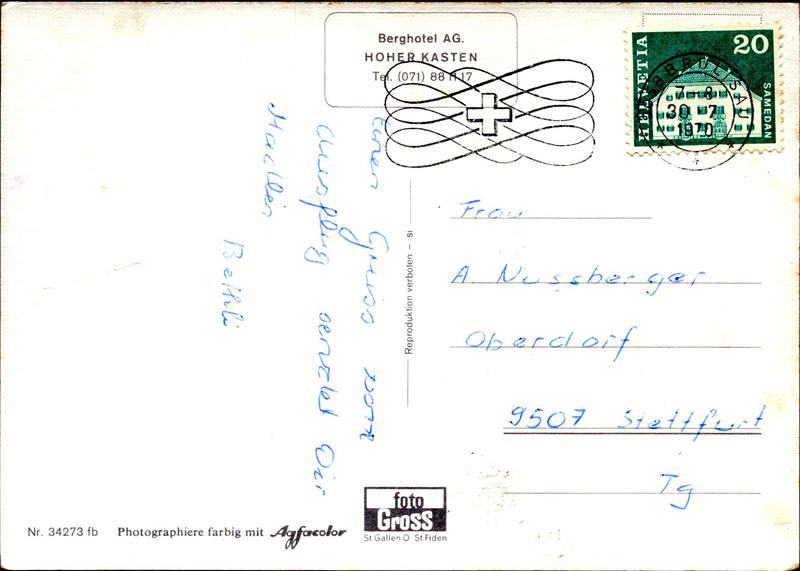 Berghotel AG.
HOHER KASTEN
Tel. (071) 88 11 17
HELVETIA
20
SAMEDAN
BRÜLISAU
7-8
30-7
1970
Einen Gruss vom
Ausflug sendet Dir
Bethli
Reproduktion verboten – si
Frau
A. Nussberger
Oberdorf
9507 Stettfurt
Tg
foto
Gross
St.Gallen O St.Fiden
Nr. 34273 fb Photographiere farbig mit Agfacolor